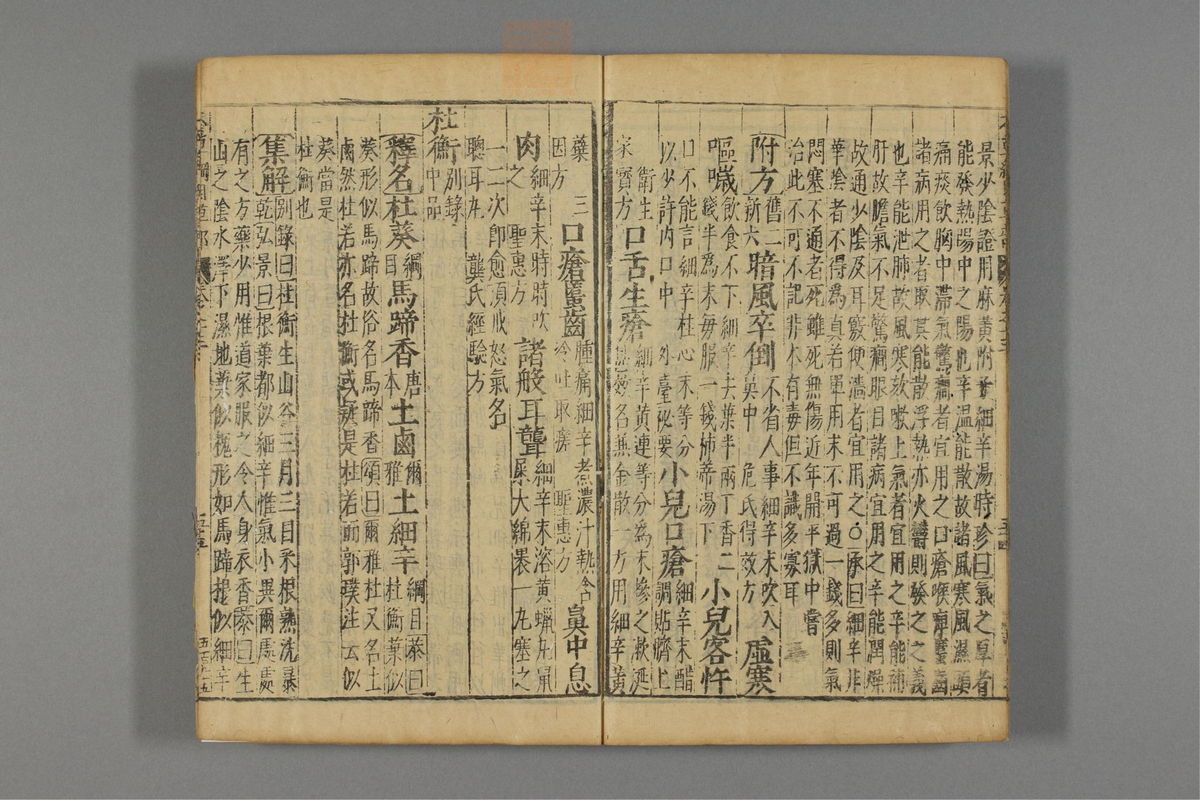 景少陰證用麻黃附子細辛湯時珍曰氣之厚者
能發熱陽中之陽也辛溫能散故諸風寒風濕頭
痛痰飲胸中滯氣驚癇者宜用之口瘡喉痺䘌齒
諸病用之者取其能散浮熱亦火鬱則發之之義
也辛能泄肺故風寒欬嗽上氣者宜用之辛能補
肝故膽氣不足驚癇眼目諸病宜用之辛能潤燥
故通少陰及耳竅便澀者宜用之○承曰細辛非
華陰者不得為真若單用末不可過一錢多則氣
悶塞不通者死雖死無傷近年開平獄中嘗
治此不可不記非本有毒但不識多寡耳
附方舊二新六暗風卒倒不省人事細辛末吹入鼻中 危氏得效方虛寒
嘔噦飲食不下細辛去葉半兩丁香二錢半為末每服一錢柿蒂湯下小兒客忤
口不能言細辛桂心末等分以少許內口中 外臺秘要小兒口瘡細辛末醋調貼臍上
衛生家寶方口舌生瘡細辛黃連等分為末摻之漱涎甚效名兼金散一方用細辛黃
蘗 三因方口瘡䘌齒腫痛細辛煮濃汁熱含冷吐取瘥 聖惠方鼻中息
肉細辛末時時吹之 聖惠方諸般耳聾細辛末溶黃蠟丸鼠屎大綿裹一丸塞之
一二次即愈須戒怒氣名聰耳丸 龔氏經驗方
杜衡別錄中品
釋名杜葵綱目馬蹄香唐本土鹵爾雅土細辛綱目恭曰杜衡葉似
葵形似馬蹄故俗名馬蹄香頌曰爾雅杜又名土
鹵然杜若亦名杜衡或疑是杜若而郭璞注云似
葵當是
杜衡也
集解別錄曰杜衡生山谷三月三日采根熟洗暴
乾弘景曰根葉都似細辛惟氣小異爾處處
有之方藥少用惟道家服之令人身衣香恭曰生
山之陰水澤下濕地葉似槐形如馬蹄根似細辛